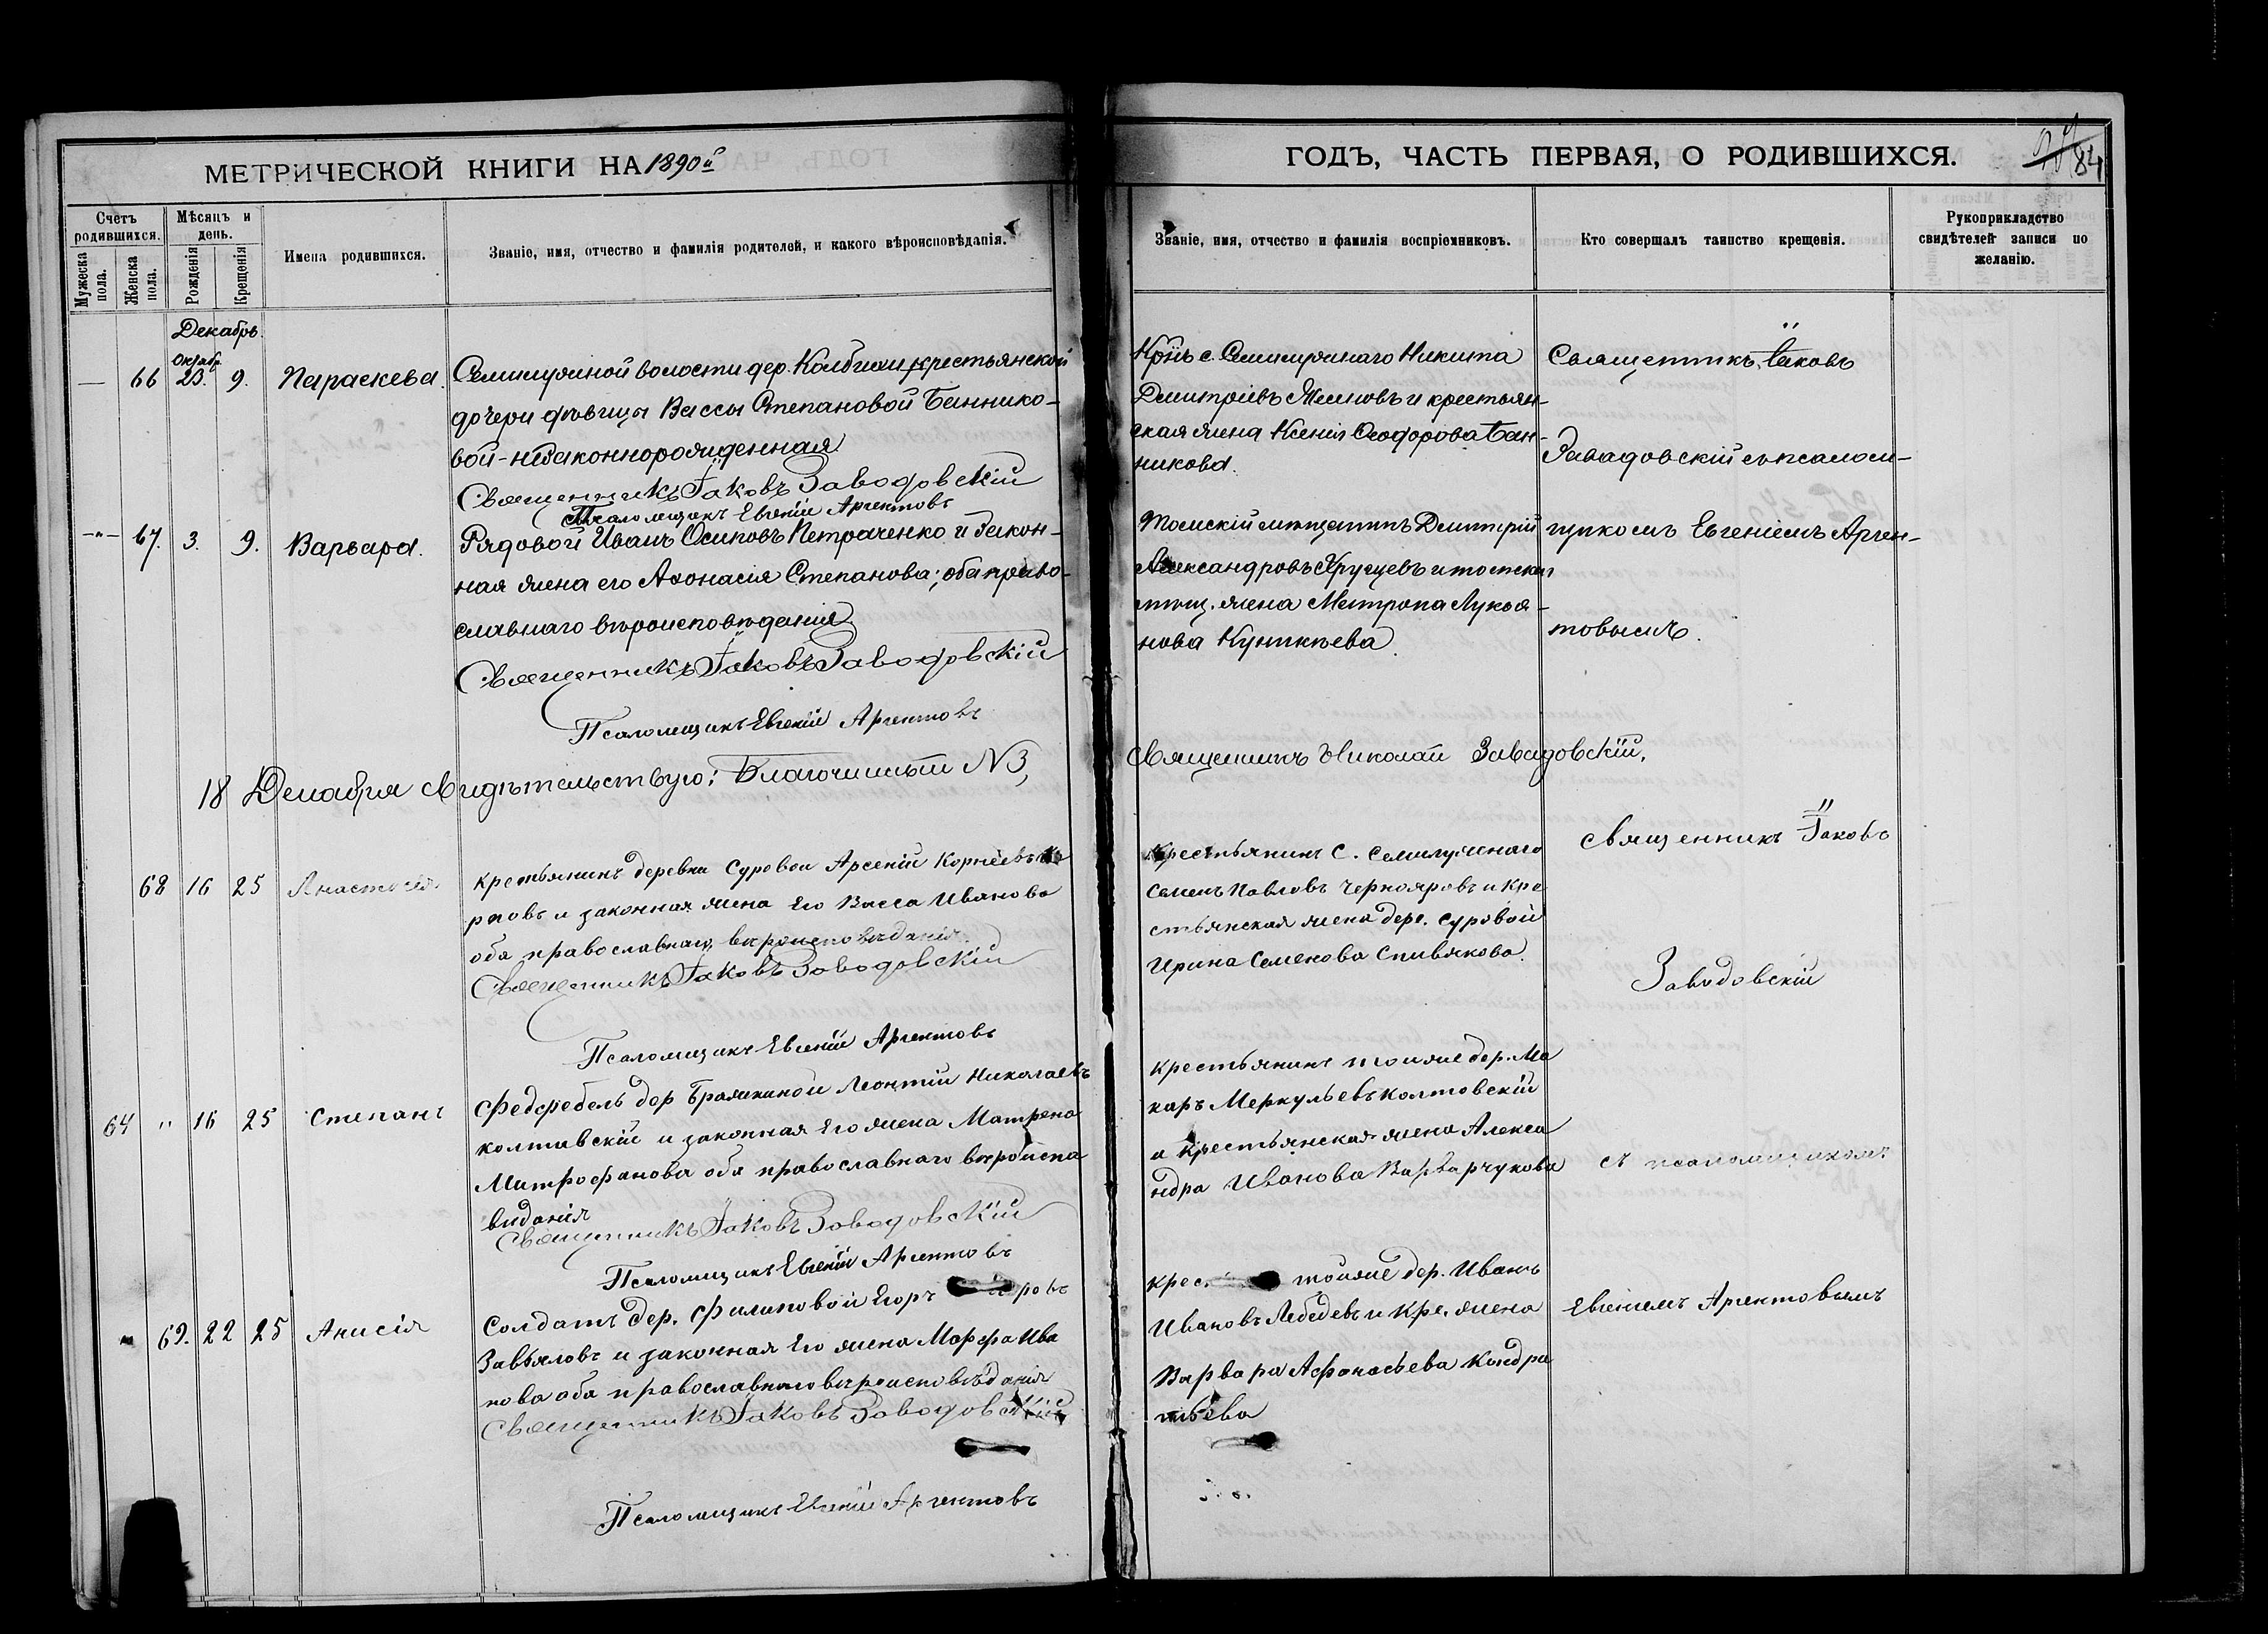 МЕТРИЧЕСКОЙ КНИГИ НА 1890й
ГОДЪ, ЧАСТЬ ПЕРВАЯ, О РОДИВШИХСЯ.
84
Счетъ родившихся.
Мужеска пола.
Женска пола.
Мѣсяцъ и день.
Рожденія
Крещенія
Имена родившихся.
Званіе, имя, отчество и фамилія родителей, и какого вѣроисповѣданія.
Званіе, имя, отчество и фамилія воспріемниковъ.
Кто совершалъ таинство крещенія.
Рукоприкладство свидѣтелей записи по желанію.
Декабрь.
Октяб.
— 66 23. 9. Параскева.
Семилужной волости дер. крестьянской
дочери дѣвицы Вассы Степановой Баннико-
вой - незаконнорожденная
Священникъ Іаковъ Заводовскій
Псаломщикъ Евгеній Аргентовъ
с. Семилужнаго Никита
Димитріевъ и крестьян-
ская жена Ксенія Ѳеодорова Бан-
никова.
Священникъ Іаковъ
Завадовскій съ псалом-
-"- 67. 3. 9. Варвара.
Рядовой Иванъ Осиповъ Петраченко и закон-
ная жена его Аѳонасія Степанова; оба право-
славнаго вѣроисповѣданія
Священникъ Іаковъ Заводовскій
Псаломщикъ Евгеній Аргентовъ
Томскій мѣщанинъ Димитрій
Александровъ и томская
мѣщ. жена Митрона Лукоя-
нова
щикомъ Евгеніемъ Арген-
товымъ.
18 Декабря свидѣтельствую: Благочинный N3,
Священникъ Николай Завадовскій.
68 16 25 Анастасія
крестьянинъ деревни Суровой Арсеній Корнеевъ
ровъ и законная жена его Васса Иванова
оба православнаго вѣроисповѣданія
Священникъ Іаковъ Заводовскій
Псаломщикъ Евгеній Аргентовъ
Крестьянинъ с. Семилужнаго
Семенъ Павловъ Чернояровъ и кре
стьянская жена дер. Суровой
Ирина Семенова Спивякова.
священникъ Іаковъ
Заводовскій
64 " 16 25 Степанъ
Фелдфебель дер Бражкиной Леонтій Николаевъ
колтавскій и законная его жена Матрена
Митрофанова оба православнаго вѣроиспо
виданія
Священникъ Іаковъ Заводовскій
Псаломщикъ Евгеній Аргентовъ
крестьянинъ тойже дер. Ма
каръ Меркульевъ колтовскій
и крестьянская жена Алекса
ндра Иванова Варварчукова
съ псаломщикомъ
69. 22 25 Анисія
Солдатъ дер. Филиповой Егоръ ровъ
Завьяловъ и законная его жена Марфа Ива
нова оба православнаго вѣроисповѣданія
Священникъ Іаковъ Заводовскій
Псаломщикъ Евгеній Аргентовъ
крес. тойже дер. Иванъ
Ивановъ Лебедевъ и кре. жена
Варвара Афонасьева Кондра
тьева
Евгеніемъ Аргентовымъ